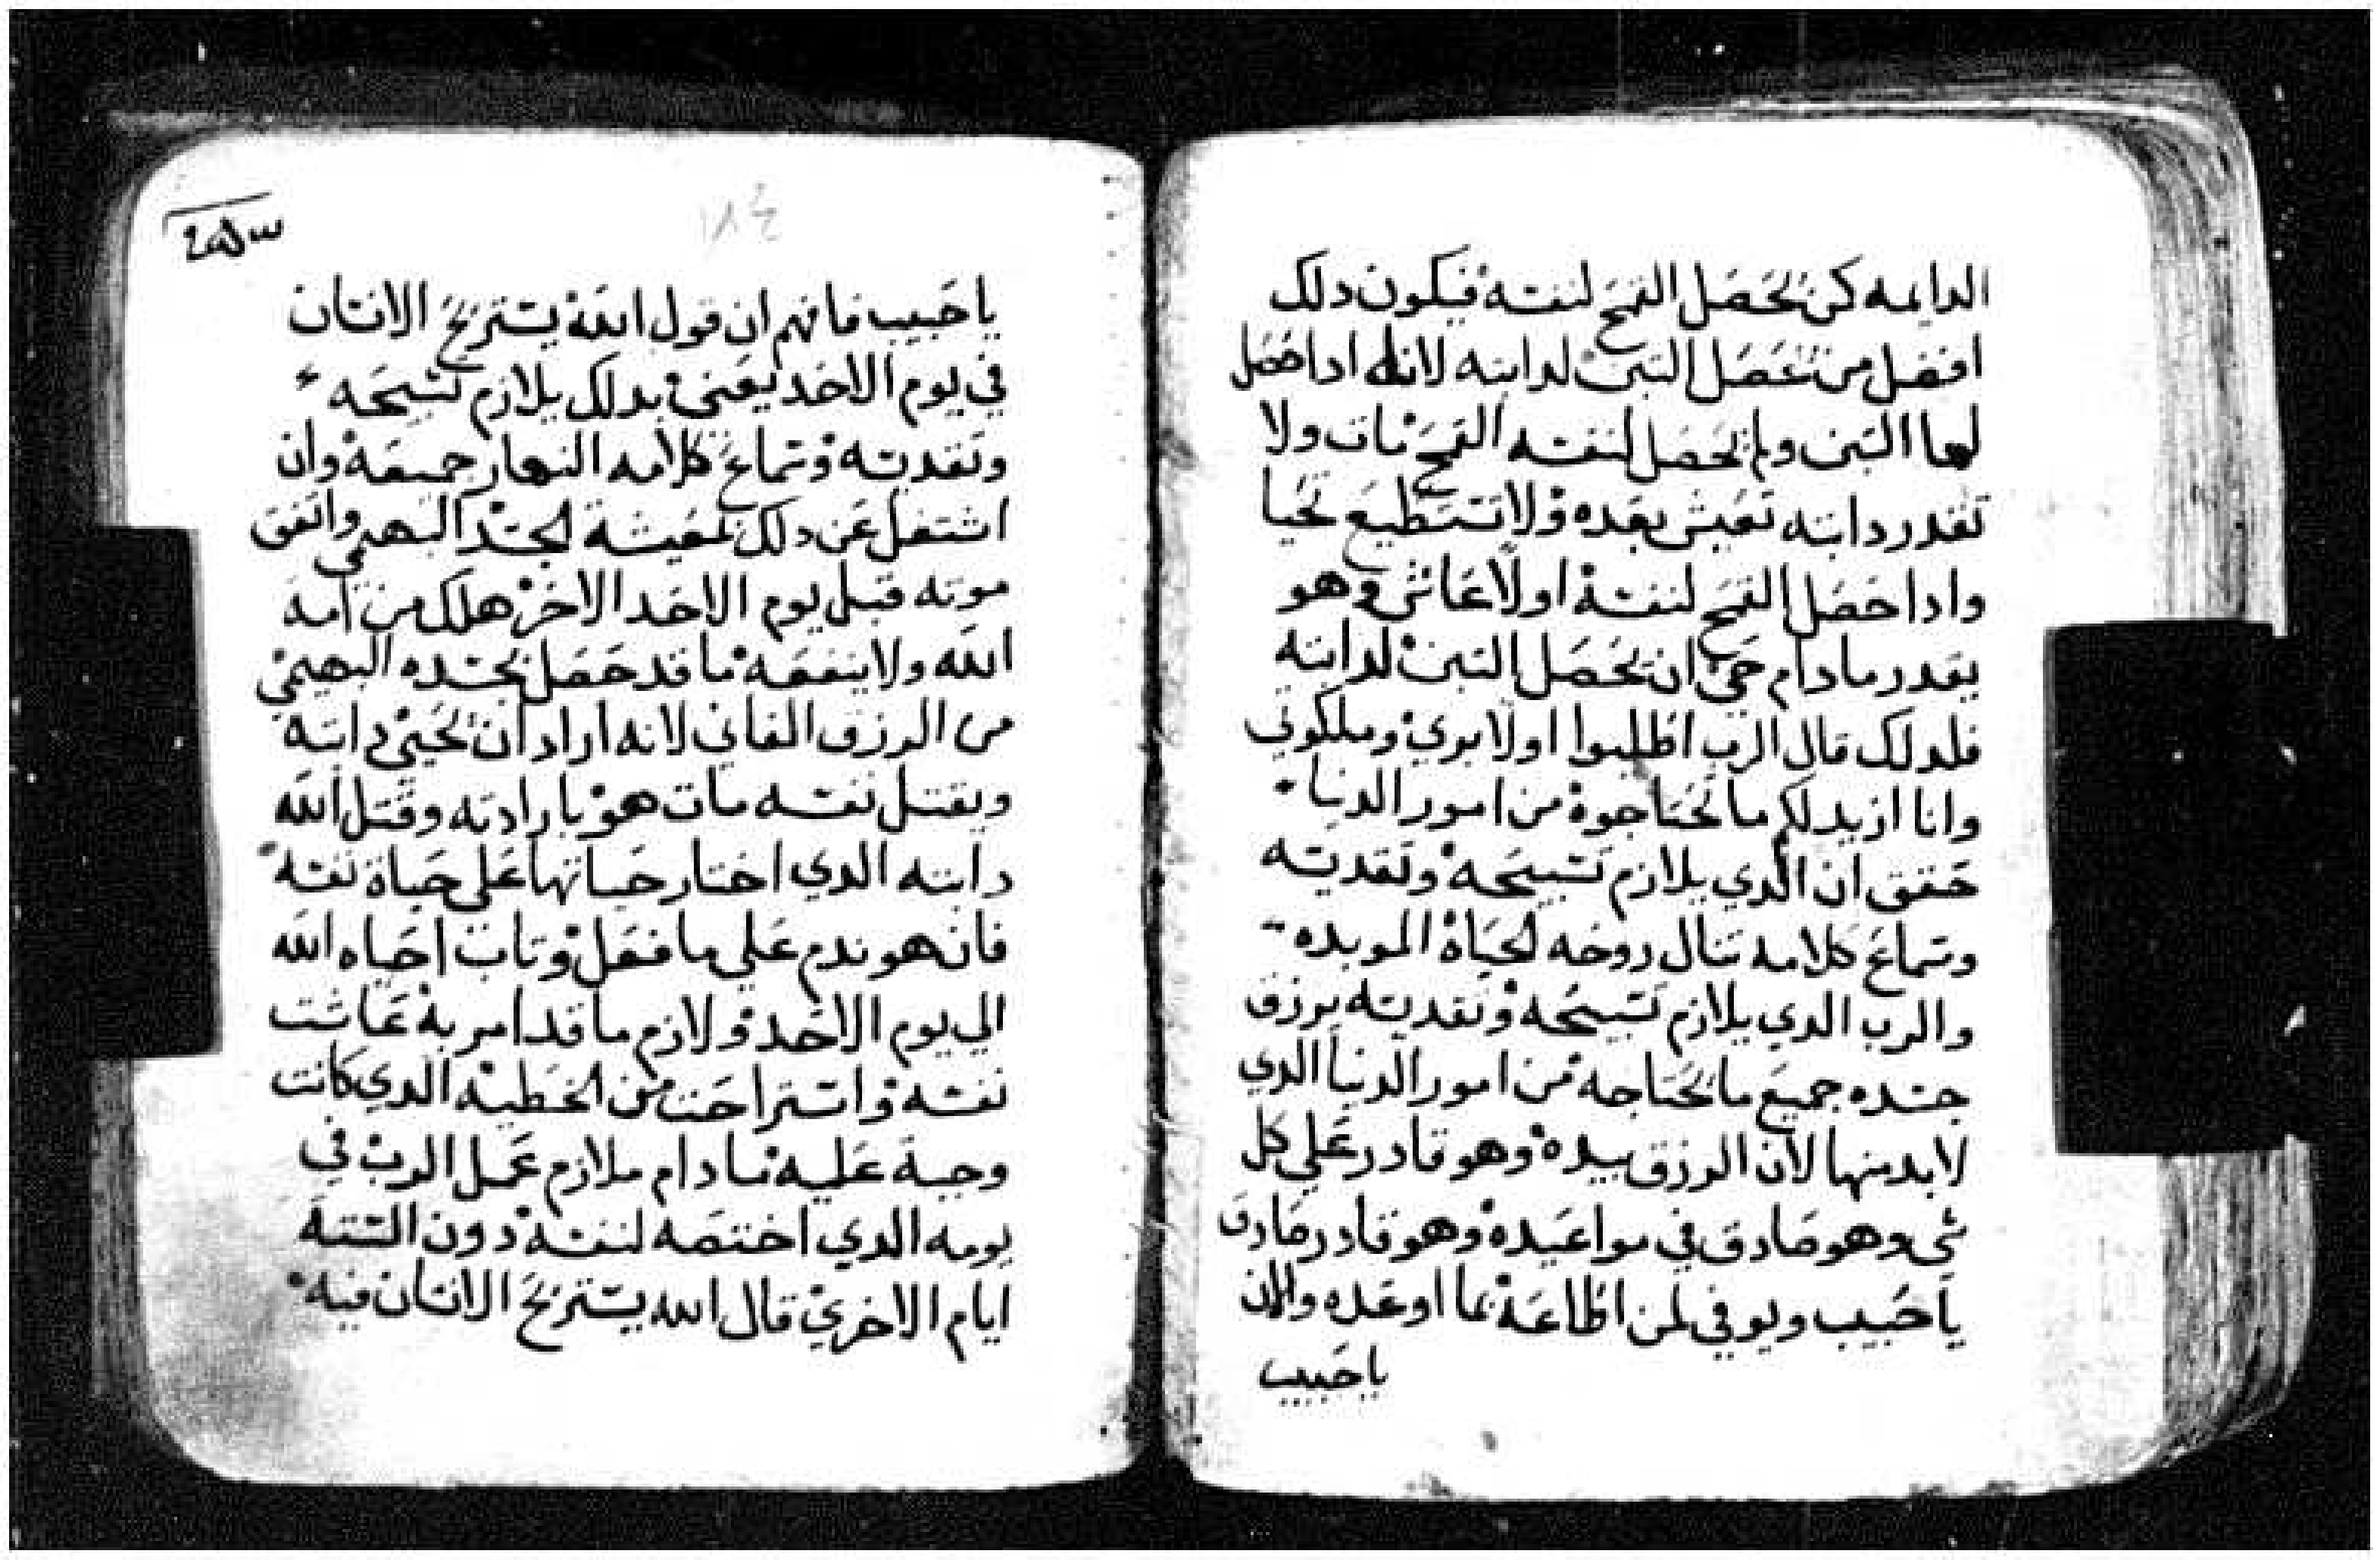 الدايمه كمن يحصل القمح لنفسه فيكون دلك
افضل من تحصل التبن لدابته لانه ادا حصل
لها التبن ولم يحصل لنفسه القمح مات ولا
تقدر دابته تعيش بعده ولا تستطيع تحيا
وادا حصل القمح لنفسه اولا عاش وهو
يقدر مادام حي ان يحصل التبن لدابته
فلدلك قال الرب اطلبوا اولا بري وملكوتي
وانا ازيد لكم ما تحتاجوه من امور الدنيا
حقق ان الدي يلازم تسبيحه وتقديسه
وسماع كلامه تنال روحه الحياه الموبده
والرب الدي يلازم تسبيحه وتقديسه يرزق
جسده جميع ما يحتاجه من امور الدنيا الدي
لابد منها لان الرزق بيده وهو قادر علي كل
شي وهو صادق في مواعيده وهو قادر صادق
يا حبيب ويوفي لمن اطاعه بما اوعده والان
يا حبيب
١٨٤
يا حبيب فافهم ان قول الله يستريح الانسان
في يوم الاحد يعني بدلك يلازم تسبيحه
وتقديسه وسماع كلامه النهار جميعه وان
اشتغل عن دلك بمعيشة الجسد البهيمي واتفق
موته قبل يوم الاحد الاخر هلك من امه
الله ولا ينفعه ما قد حصل لجسده البهيمي
من الرزق الفاني لانه اراد ان يحيي دابته
ويقتل نفسه مات هو بارادته وقتل الله
دابته الدي اختار حياتها علي حياة نفسه
فان هو ندم علي ما فعل وتاب احياه الله
الي يوم الاحد ولازم ما قد امر به عاشت
نفسه واستراحت من الخطيه الدي كانت
وجبة عليه مادام ملازم عمل الرب في
يومه الدي اختصه لنفسه دون الستة
ايام الاخري قال الله يستريح الانسان فيه